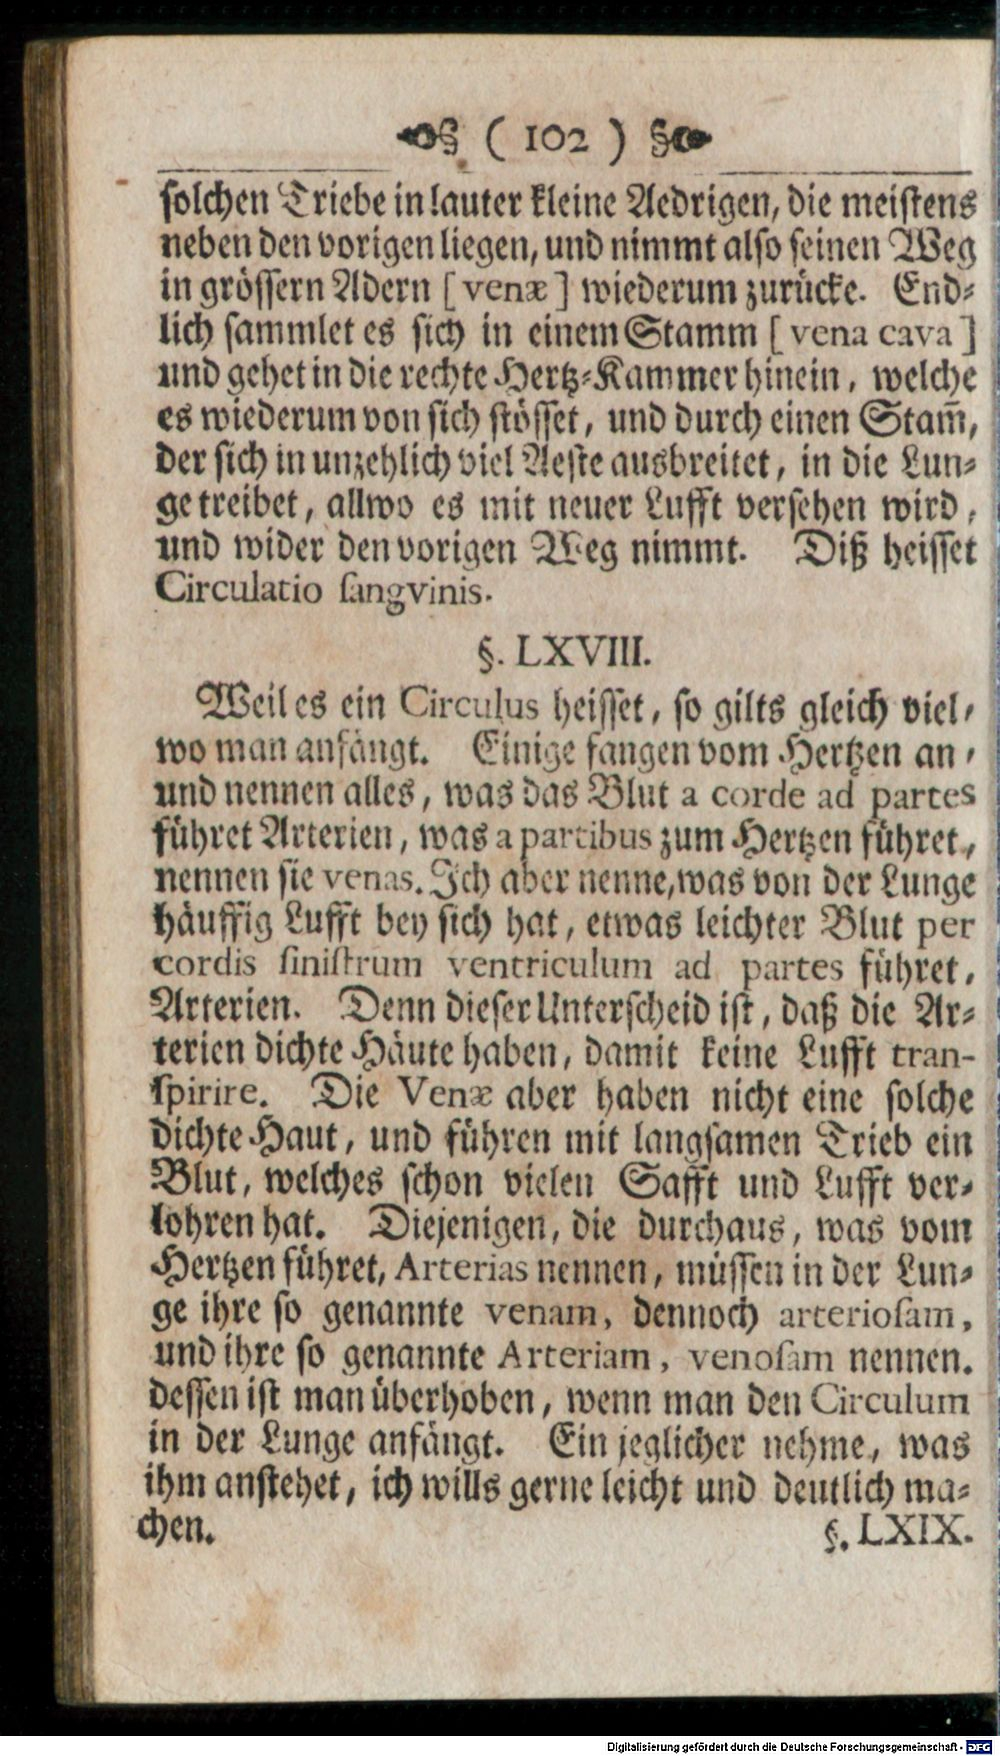 ( 102 )
solchen Triebe in lauter kleine Aedrigen, die meistens
neben den vorigen liegen, und nimmt also seinen Weg
in grössern Adern [ venæ ] wiederum zurücke. End-
lich sammlet es sich in einem Stamm [ vena cava ]
und gehet in die rechte Hertz-Kammer hinein, welche
es wiederum von sich stösset, und durch einen Stam̃,
der sich in unzehlich viel Aeste ausbreitet, in die Lun-
ge treibet, allwo es mit neuer Lufft versehen wird,
und wider den vorigen Weg nimmt. Diß heisset
Circulatio sangvinis.
§. LXVIII.
Weil es ein Circulus heisset, so gilts gleich viel,
wo man anfängt. Einige fangen vom Hertzen an,
und nennen alles, was das Blut a corde ad partes
führet Arterien, was a partibus zum Hertzen führet,
nennen sie venas. Ich aber nenne, was von der Lunge
häuffig Lufft bey sich hat, etwas leichter Blut per
cordis sinistrum ventriculum ad partes führet,
Arterien. Denn dieser Unterscheid ist, daß die Ar-
terien dichte Häute haben, damit keine Lufft tran-
spirire. Die Venæ aber haben nicht eine solche
dichte Haut, und führen mit langsamen Trieb ein
Blut, welches schon vielen Safft und Lufft ver-
lohren hat. Diejenigen, die durchaus, was vom
Hertzen führet, Arterias nennen, müssen in der Lun-
ge ihre so genannte venam, dennoch arteriosam,
und ihre so genannte Arteriam, venosam nennen.
dessen ist man überhoben, wenn man den Circulum
in der Lunge anfängt. Ein jeglicher nehme, was
ihm anstehet, ich wills gerne leicht und deutlich ma-
chen. §. LXIX.
Digitalisierung gefördert durch die Deutsche Forschungsgemeinschaft - DFG